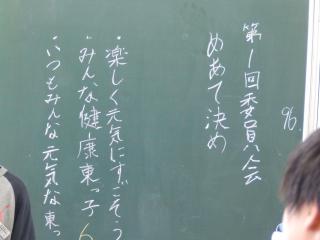 第1回委員会
めあて決め
・楽しく元気にすごそう
・みんな健康東っ子
・いつもみんな元気な東っ